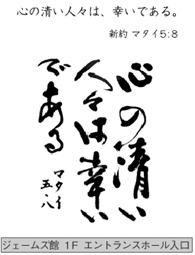 心の清い人々は、幸いである。
新約 マタイ5:8
心の清い
人々は幸い
である
マタイ
五・八
ジェームズ館 1F エントランスホール入口